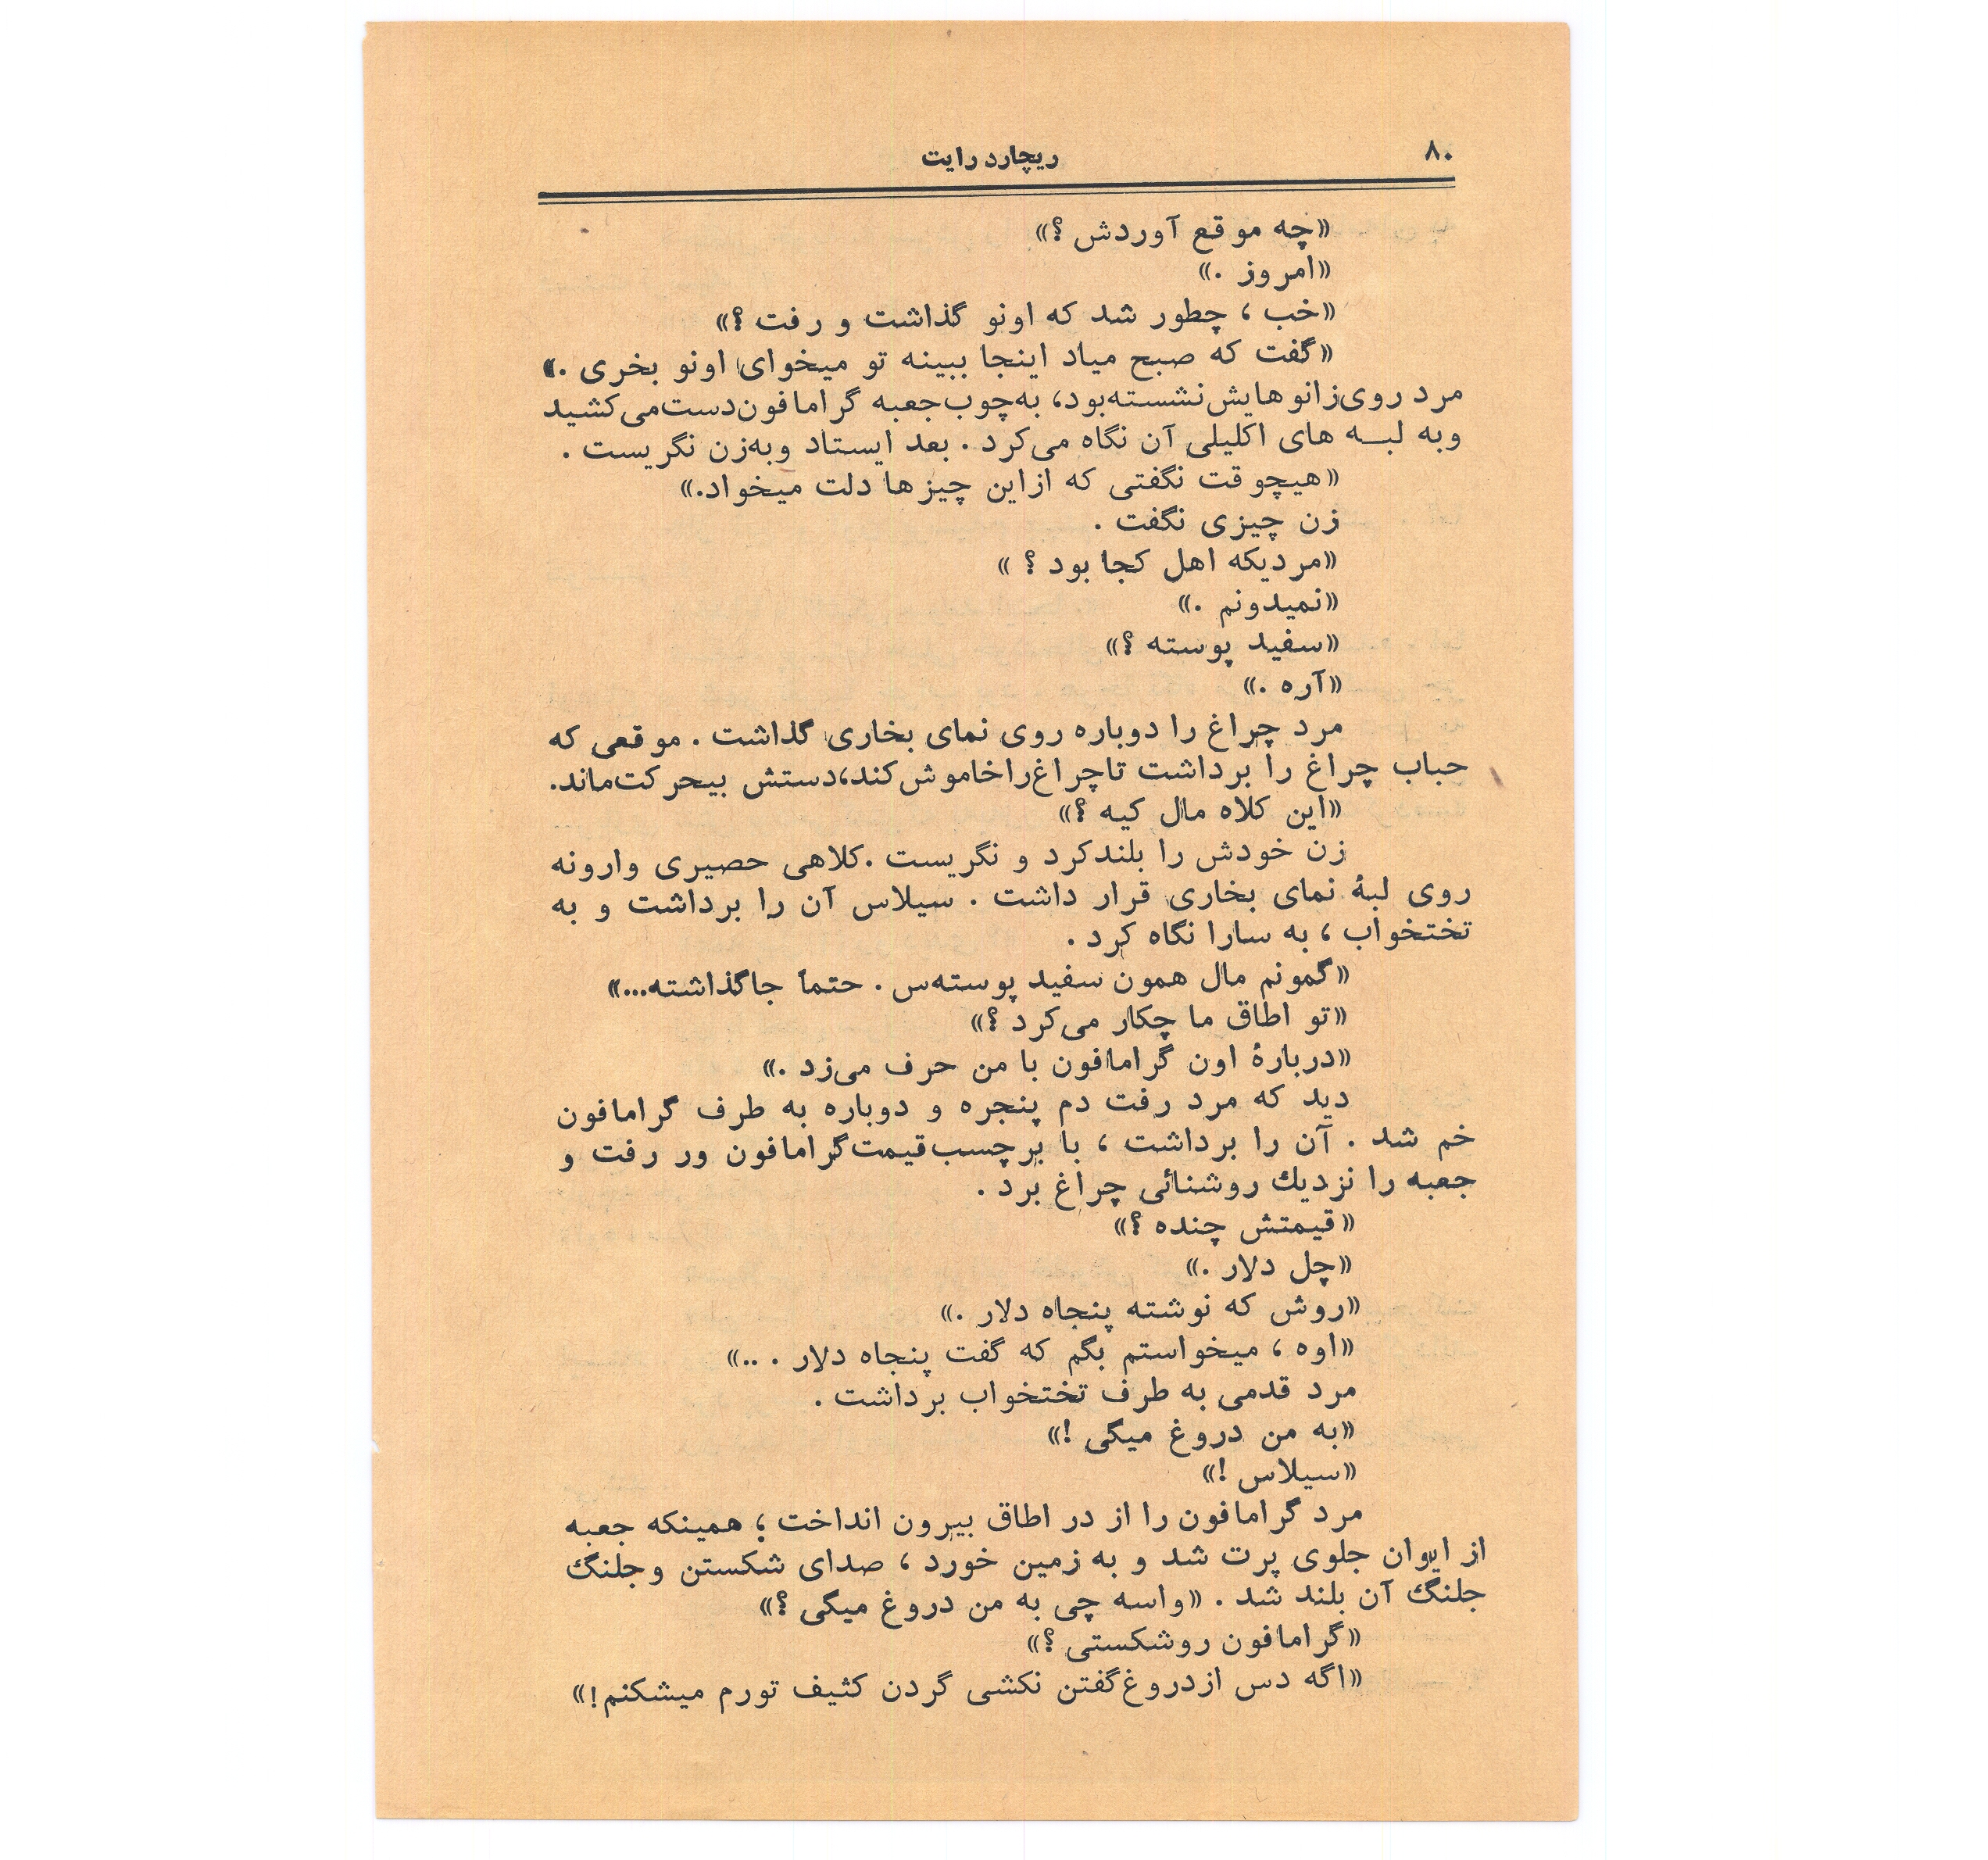 ۸۰
ریچارد رایت
«چه موقع آوردش ؟»
«امروز .»
«خب ، چطور شد که اونو گذاشت و رفت ؟»
«گفت که صبح میاد اینجا ببینه تو میخوای اونو بخری .»
مرد روی‌زانوهایش‌نشسته‌بود، به‌چوب‌جعبه گرامافون‌دست‌می‌کشید
وبه لبه های اکلیلی آن نگاه می‌کرد . بعد ایستاد وبه‌زن نگریست .
«هیچوقت نگفتی که ازاین چیزها دلت میخواد.»
زن چیزی نگفت .
«مردیکه اهل کجا بود ؟ »
«نمیدونم .»
«سفید پوسته ؟»
«آره .»
مرد چراغ را دوباره روی نمای بخاری گذاشت . موقعی که
حباب چراغ را برداشت تاچراغ‌راخاموش‌کند،دستش بیحرکت‌ماند.
«این کلاه مال کیه ؟»
زن خودش را بلندکرد و نگریست .کلاهی حصیری وارونه
روی لبهٔ نمای بخاری قرار داشت . سیلاس آن را برداشت و به
تختخواب ، به سارا نگاه کرد .
«گمونم مال همون سفید پوسته‌س . حتماً جاگذاشته...»
«تو اطاق ما چکار می‌کرد ؟»
«دربارهٔ اون گرامافون با من حرف می‌زد .»
دید که مرد رفت دم پنجره و دوباره به طرف گرامافون
خم شد . آن را برداشت ، با برچسب‌قیمت‌گرامافون ور رفت و
جعبه را نزدیك روشنائی چراغ برد .
«قیمتش چنده ؟»
«چل دلار .»
«روش که نوشته پنجاه دلار .»
«اوه ، میخواستم بگم که گفت پنجاه دلار . ..»
مرد قدمی به طرف تختخواب برداشت .
«به من دروغ میگی !»
«سیلاس !»
مرد گرامافون را از در اطاق بیرون انداخت ؛ همینکه جعبه
از ایوان جلوی پرت شد و به زمین خورد ، صدای شکستن وجلنگ
جلنگ آن بلند شد . «واسه چی به من دروغ میگی ؟»
«گرامافون روشکستی ؟»
«اگه دس ازدروغ‌گفتن نکشی گردن کثیف تورم میشکنم!»